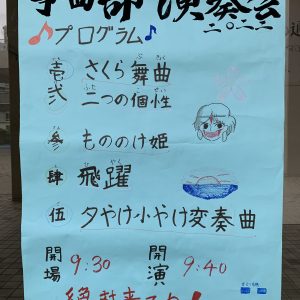 箏曲部 演奏会
二〇二二
プログラム
壱 さくら舞曲
弐 二つの個性
参 もののけ姫
肆 飛躍
伍 夕やけ小やけ変奏曲
開場 9:30 開演 9:40
絶対来てネ!